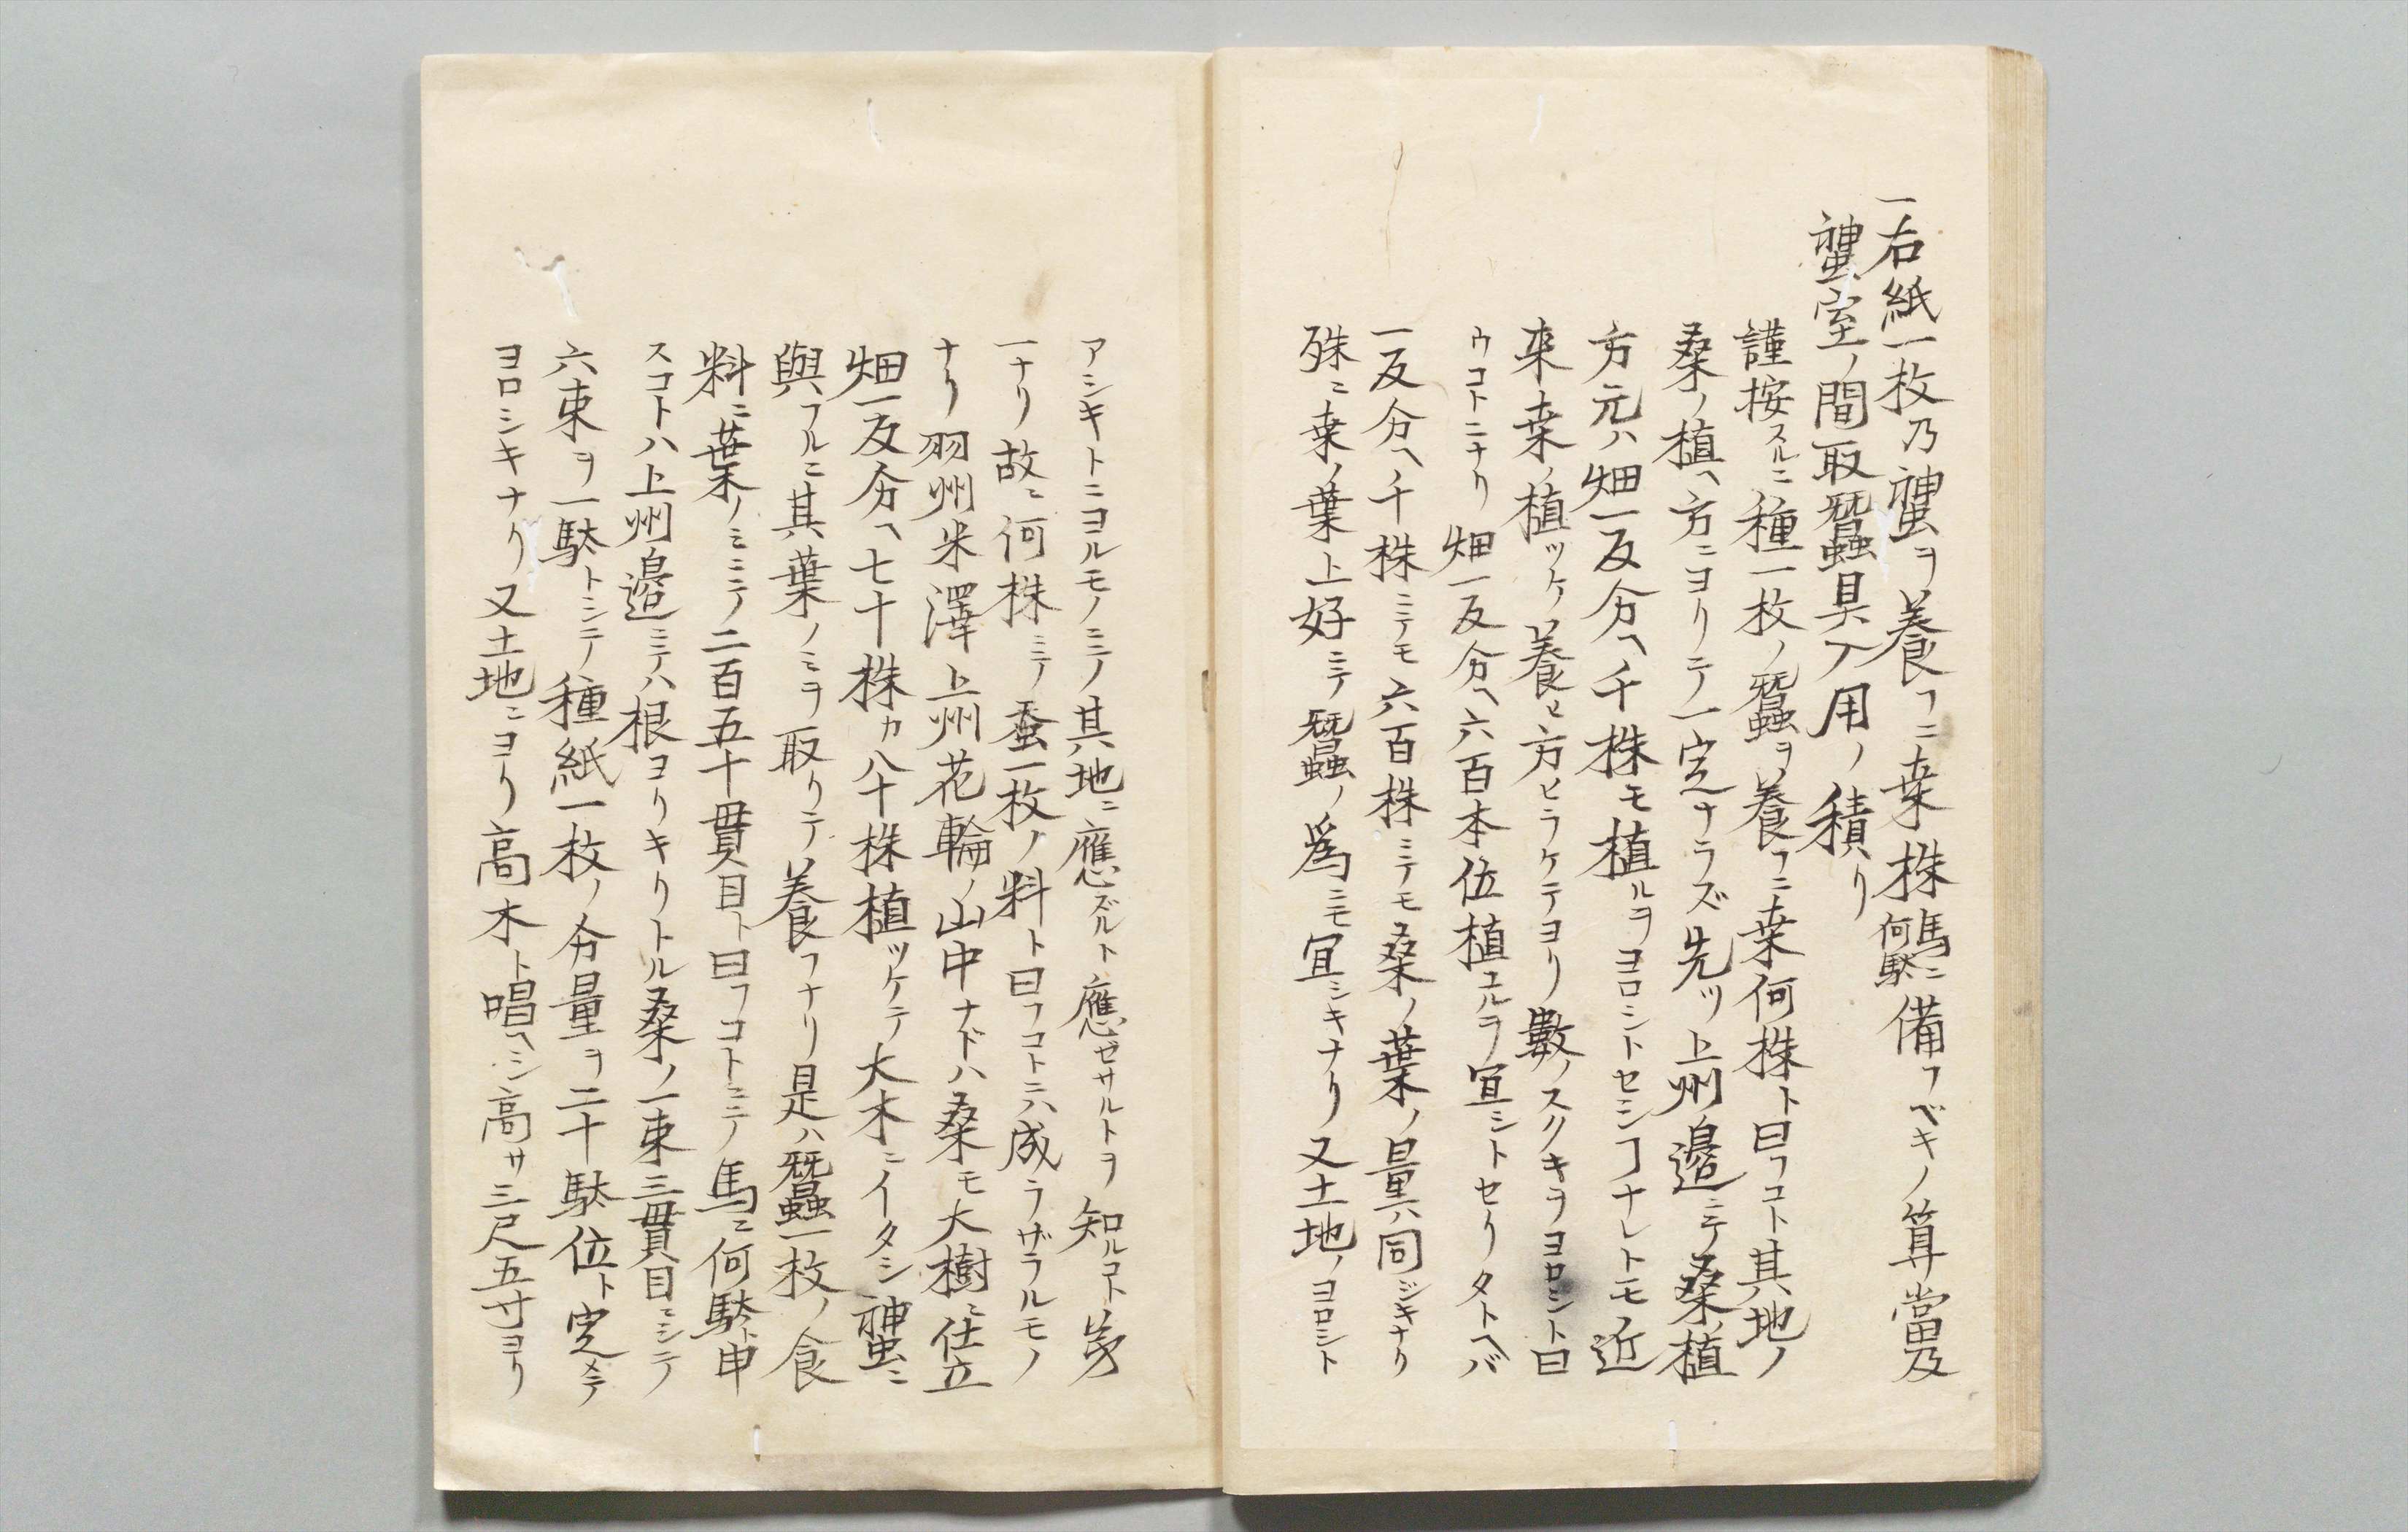 一右紙一枚乃神虫ヲ養フニ桒株馬ニ何駄ニ備フベキノ算當及
神虫室ノ間取蠶具入用ノ積リ
謹按スルニ種一枚ノ蠶ヲ養フニ桒何株ト曰フコト其地ノ
桑ノ植ヘ方ニヨリテ一定ナラズ先ツ上州邉ニテ桑ノ植
方元ハ畑一反分ヘ千株モ植ルヲヨロシトセシヿナレトモ近
来桒ノ植ツケ養ヒ方ヒラケテヨリ數ノスクキヲヨロシト曰
ウコトニナリ 畑一反分ヘ六百本位植エルヲ宜シトセリタトヘバ
一反分ヘ千株ニテモ六百株ニテモ桑ノ葉ノ量ハ同ジキナリ
殊ニ桒ノ葉上好ニテ蠶ノ爲ニモ宜シキナリ又土地ノヨロシト
アシキトニヨルモノニテ其地ニ應ズルト應ゼサルトヲ知ルコト第
一ナリ故ニ何株ニテ蚕一枚ノ料ト曰フコトニハ成ラザラルモノ
ナリ羽州米澤上州花輪ノ山中ナドハ桑モ大樹ニ仕立
畑一反分ヘ七十株カ八十株植ツケテ大木ニイタシ神虫ニ
與フルニ其葉ノミヲ取リテ養フナリ是ハ蠶一枚ノ食
料ニ葉ノミニテ二百五十貫目ト曰フコトニテ馬ニ何駄ト申
スコトハ上州邉ニテハ根ヨリキリトル桑ノ一束三貫目ニシテ
六束ヲ一駄トシテ種紙一枚ノ分量ヲ二十駄位ト定メテ
ヨロシキナリ又土地ニヨリ高木ト唱ヘシ高サ三尺五寸ヨリ